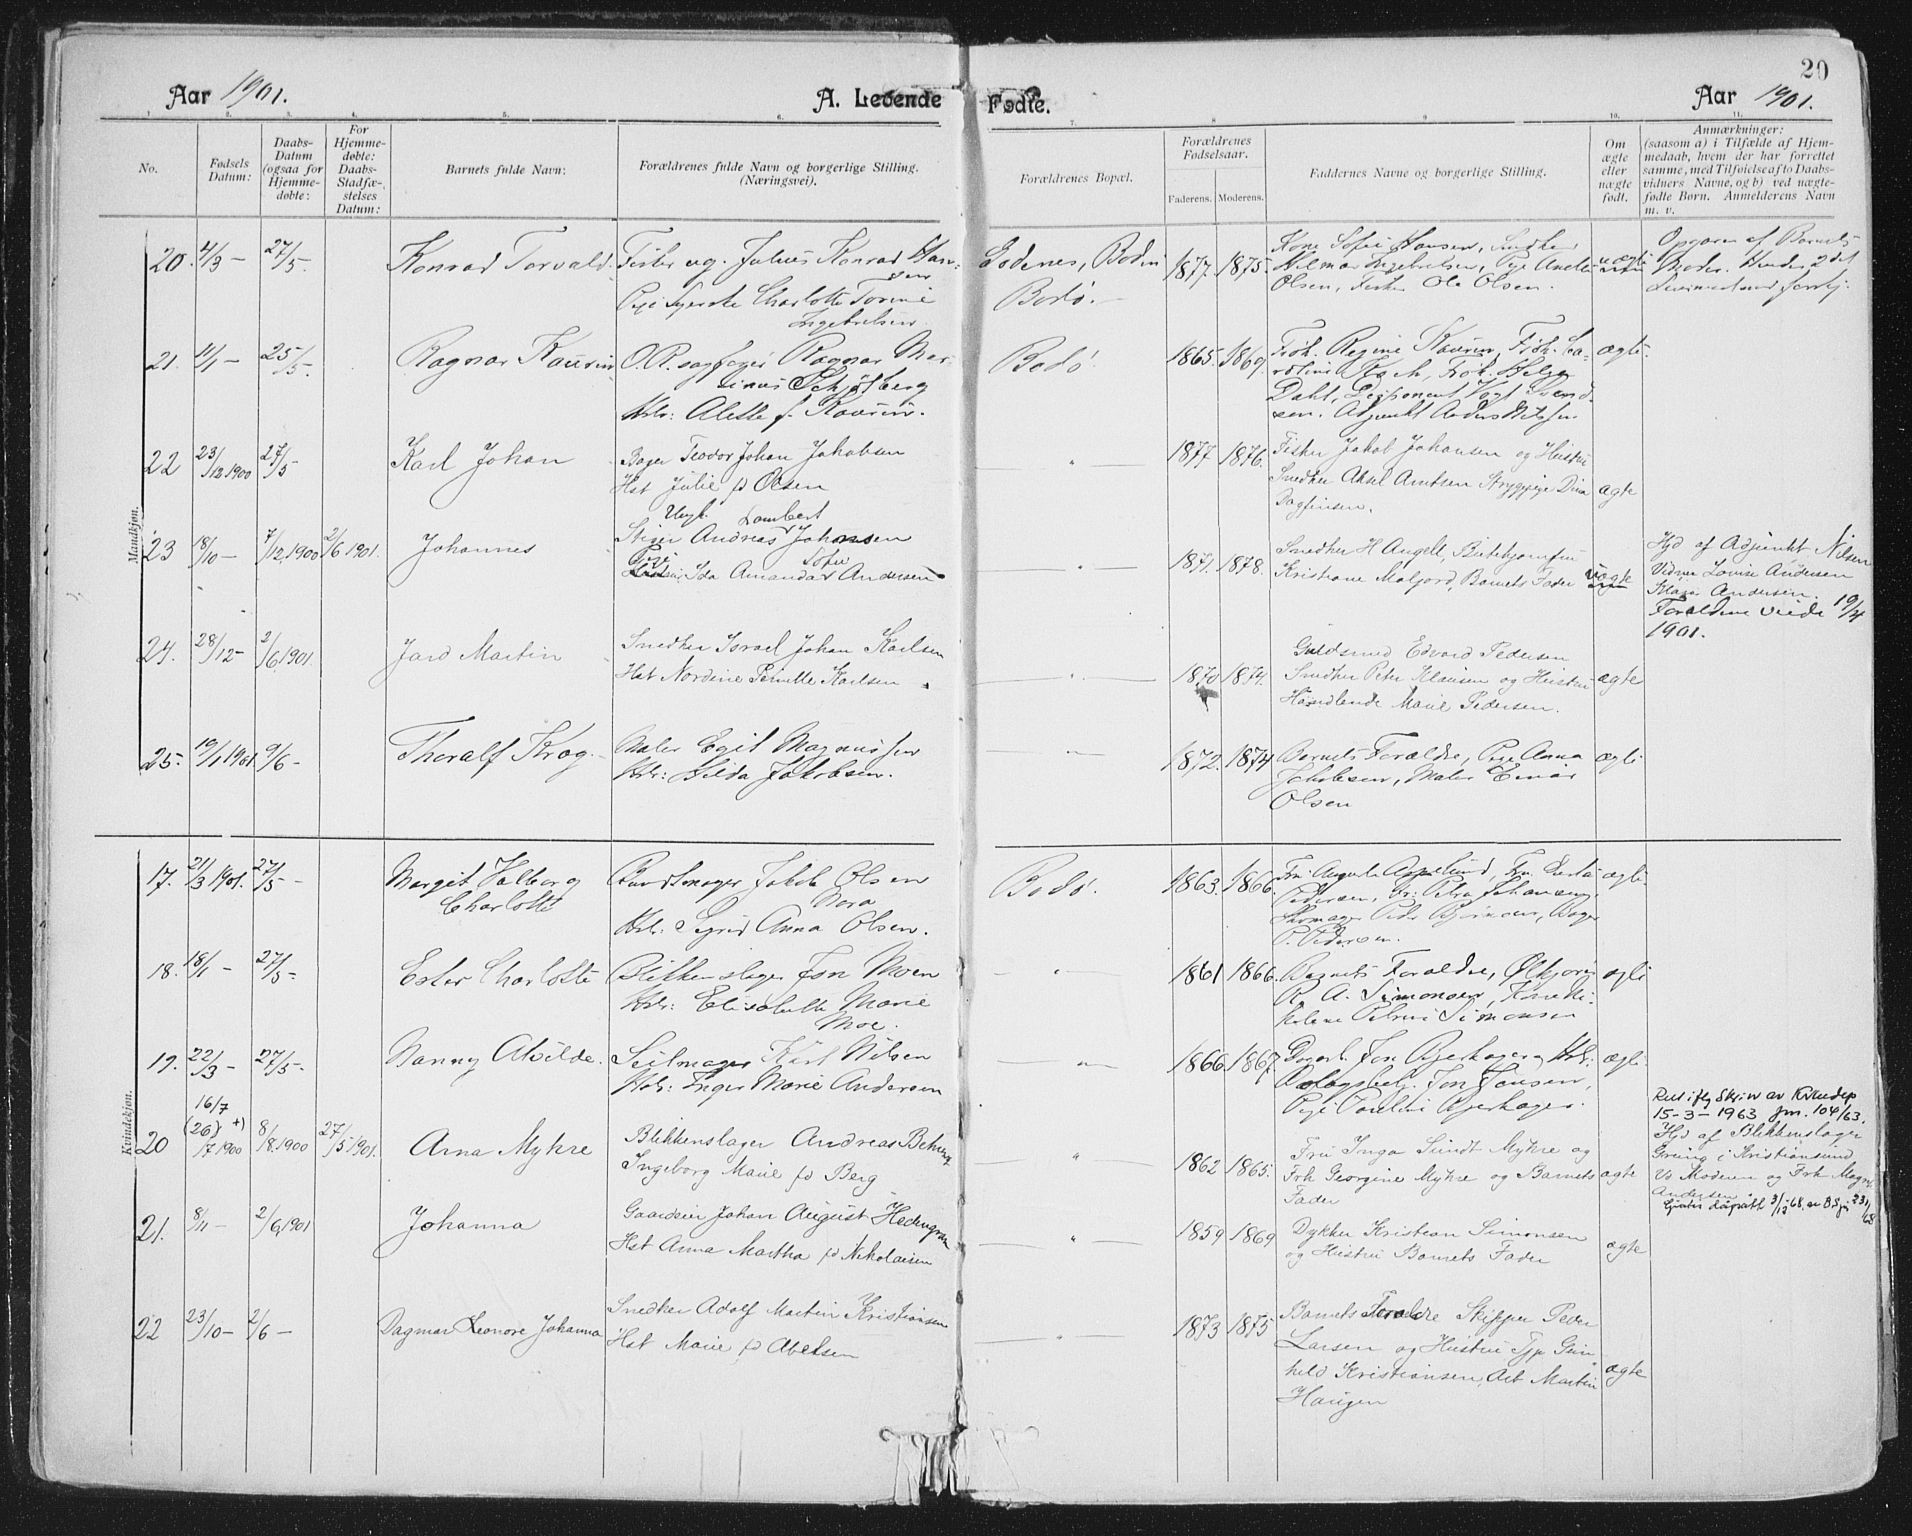 20
Aar 1901.
A. Levende Fødte.
Aar 1901.
No.
Fødsels Datum:
Daabs-Datum (ogsaa for Hjemme-døbte:
For Hjemme-døbte: Daabs-Stadfæ-stelses Datum:
Barnets fulde Navn:
Forældrenes fulde Navn og borgerlige Stilling. (Næringsvei).
Forældrenes Bopæl.
Forældrenes Fødselsaar.
Faderens. Moderens.
Faddernes Navne og borgerlige Stilling.
Om ægte eller nægte født.
Anmærkninger: (saasom a) i Tilfælde af Hjem-medaab, hvem der har forrettet samme, med Tilføielse af to Daabs-vidners Navne, og b) ved nægte-fødte Børn. Anmelderens Navn m. v.
Mandkjøn.
20. 4/3 - 27/5. Konrad Torvald Fisker ug. Julius Konrad Han-
sen
Pige Syerske Charlotte Torine
Ingebrelsen.
Bodø. 1877. 1875. Kone Sofie Hansen, Snedker
Hilmar Ingebrelsen, Pige
Olsen, Fisker Ole Olsen.
uægte
af Barnets
Moder. Hendes 2det
21. 11/1 - 25/5. Ragnar Kaurin O.R.sagfører Ragnar Mar-
tinus Schjølberg
Hstr: Alette f. Kaurin.
Bodø. 1865. 1869. Frøk. Regine Kaurin, Frøk.
Koch, Frøk. Helga
Dahl, Disponent Vogt Svend-
sen. Adjunkt Anders Nilsen
ægte.
22 23/12 1900 27/5 Karl Johan Bager Teodor Johan Jakobsen
Hst Julie fd Olsen
- " - 1877 1876. Fisker Jakob Johansen og Hustru
Snedker Aksel Arntsen Strygepige Dina
Dagfinsen.
ægte
23 18/10 - 7/12 1900 2/6 1901. Johannes
Ungk. Lambert
Andreas Johansen
Pige Sofie
Ida Amanda Andersen
- " - 1871. 1878. Snedker H Angell, Butikjomfru
Kristiane Maljord, Barnets Fader
uægte
Hjd af Adjunkt Nilsen
Vidner Lovise Andersen
Andersen.
Forældrene viede 19/4
1901.
24. 28/12 - 2/6 1901. Jard Martin Snedker Israel Johan Karlsen
Hst Nordine Pernille Karlsen
- " - 1870 1874. Guldsmed Edvard Pedersen
Snedker Peter Klausen og Hustru
Handlende Marie Pedersen.
ægte
25. 19/1 1901. 9/6 - Thoralf Krog Maler Egil Magnussen
Hstr: Hilda Jakobsen.
- " - 1872. 1874 Barnets Forældre, Pige Anna
Jakobsen, Maler Einar
Olsen
ægte
Kvindekjøn.
17. 21/3 1901. 27/5 - Margit Valborg
Charlotte
Buntmager Jakob Olsen
Nora
Hstr: Sigrid Anna Olsen.
Bodø. 1863. 1866. Fru Augusta Fru
Pedersen, Fr: Petra Johansen,
Skomager Peder Bager
P. Pedersen.
ægte
18. 18/1 - 27/5 - Ester Charlotte Blikkenslager Jon Moen
Hstr: Elisabeth Marie
Moe.
- " - 1861 1866. Barnets Forældre,
A. Simonsen,
Simonsen
ægte
19. 22/3 - 27/5 - Nanny Alvilde. Seilmager Karl Nilsen
Hstr: Inger Marie Andersen
- " - 1866. 1867. Jon Bjerhager og Hstr:
Jon Jonsen,
Pige Pauline Bjerhager.
ægte
20 16/7
(26/7 1900 +) 8/8 1900 27/5 1901. Arna Myhre Blikkenslager Andreas
Ingeborg Marie fd Berg
- " - 1862 1865. Fru Inga Sundt Myhre og
Frk Georgine Myhre og Barnets
Fader
ægte
Rett ifl Skriv av Kirkedep
15-3-1963 jnr. 104/63.
Hjd af Blikkenslager
Greining i Kristiansund
Vd Moderen og Frk Magn.
Andersen
21. 8/11 - 2/6 1901 Johanna Gaardeier Johan August Hedengran
Hst Anna Martha fd Nikolaisen
- " - 1859 1869 Dykker Kristian Simonsen
og Hustru Barnets Fader
ægte
22 23/10 - 2/6 - Dagmar Leonore Johanna Snedker Adolf Martin Kristiansen
Hst Marie fd Abelsen
- " - 1873 1875 Barnets Forældre Skipper Peder
Larsen og Hustru Tjp Gun-
hild Kristiansen, Arb Martin
Haugen
ægte